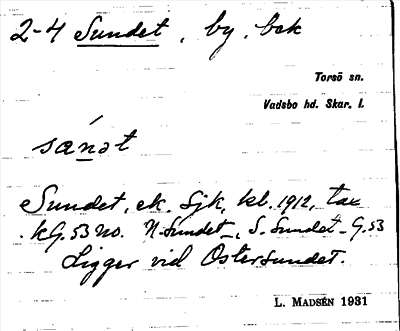 2-4 Sundet, by, bek
Torsö sn.
Vadsbo hd. Skar. l.
sánət
Sundet, ek. Sjk, kl. 1912, tax
kG. 53 No. N. Sundet -, S. Sundet - G. 53
Ligger vid Östersundet.
L. MADSÉN 1931